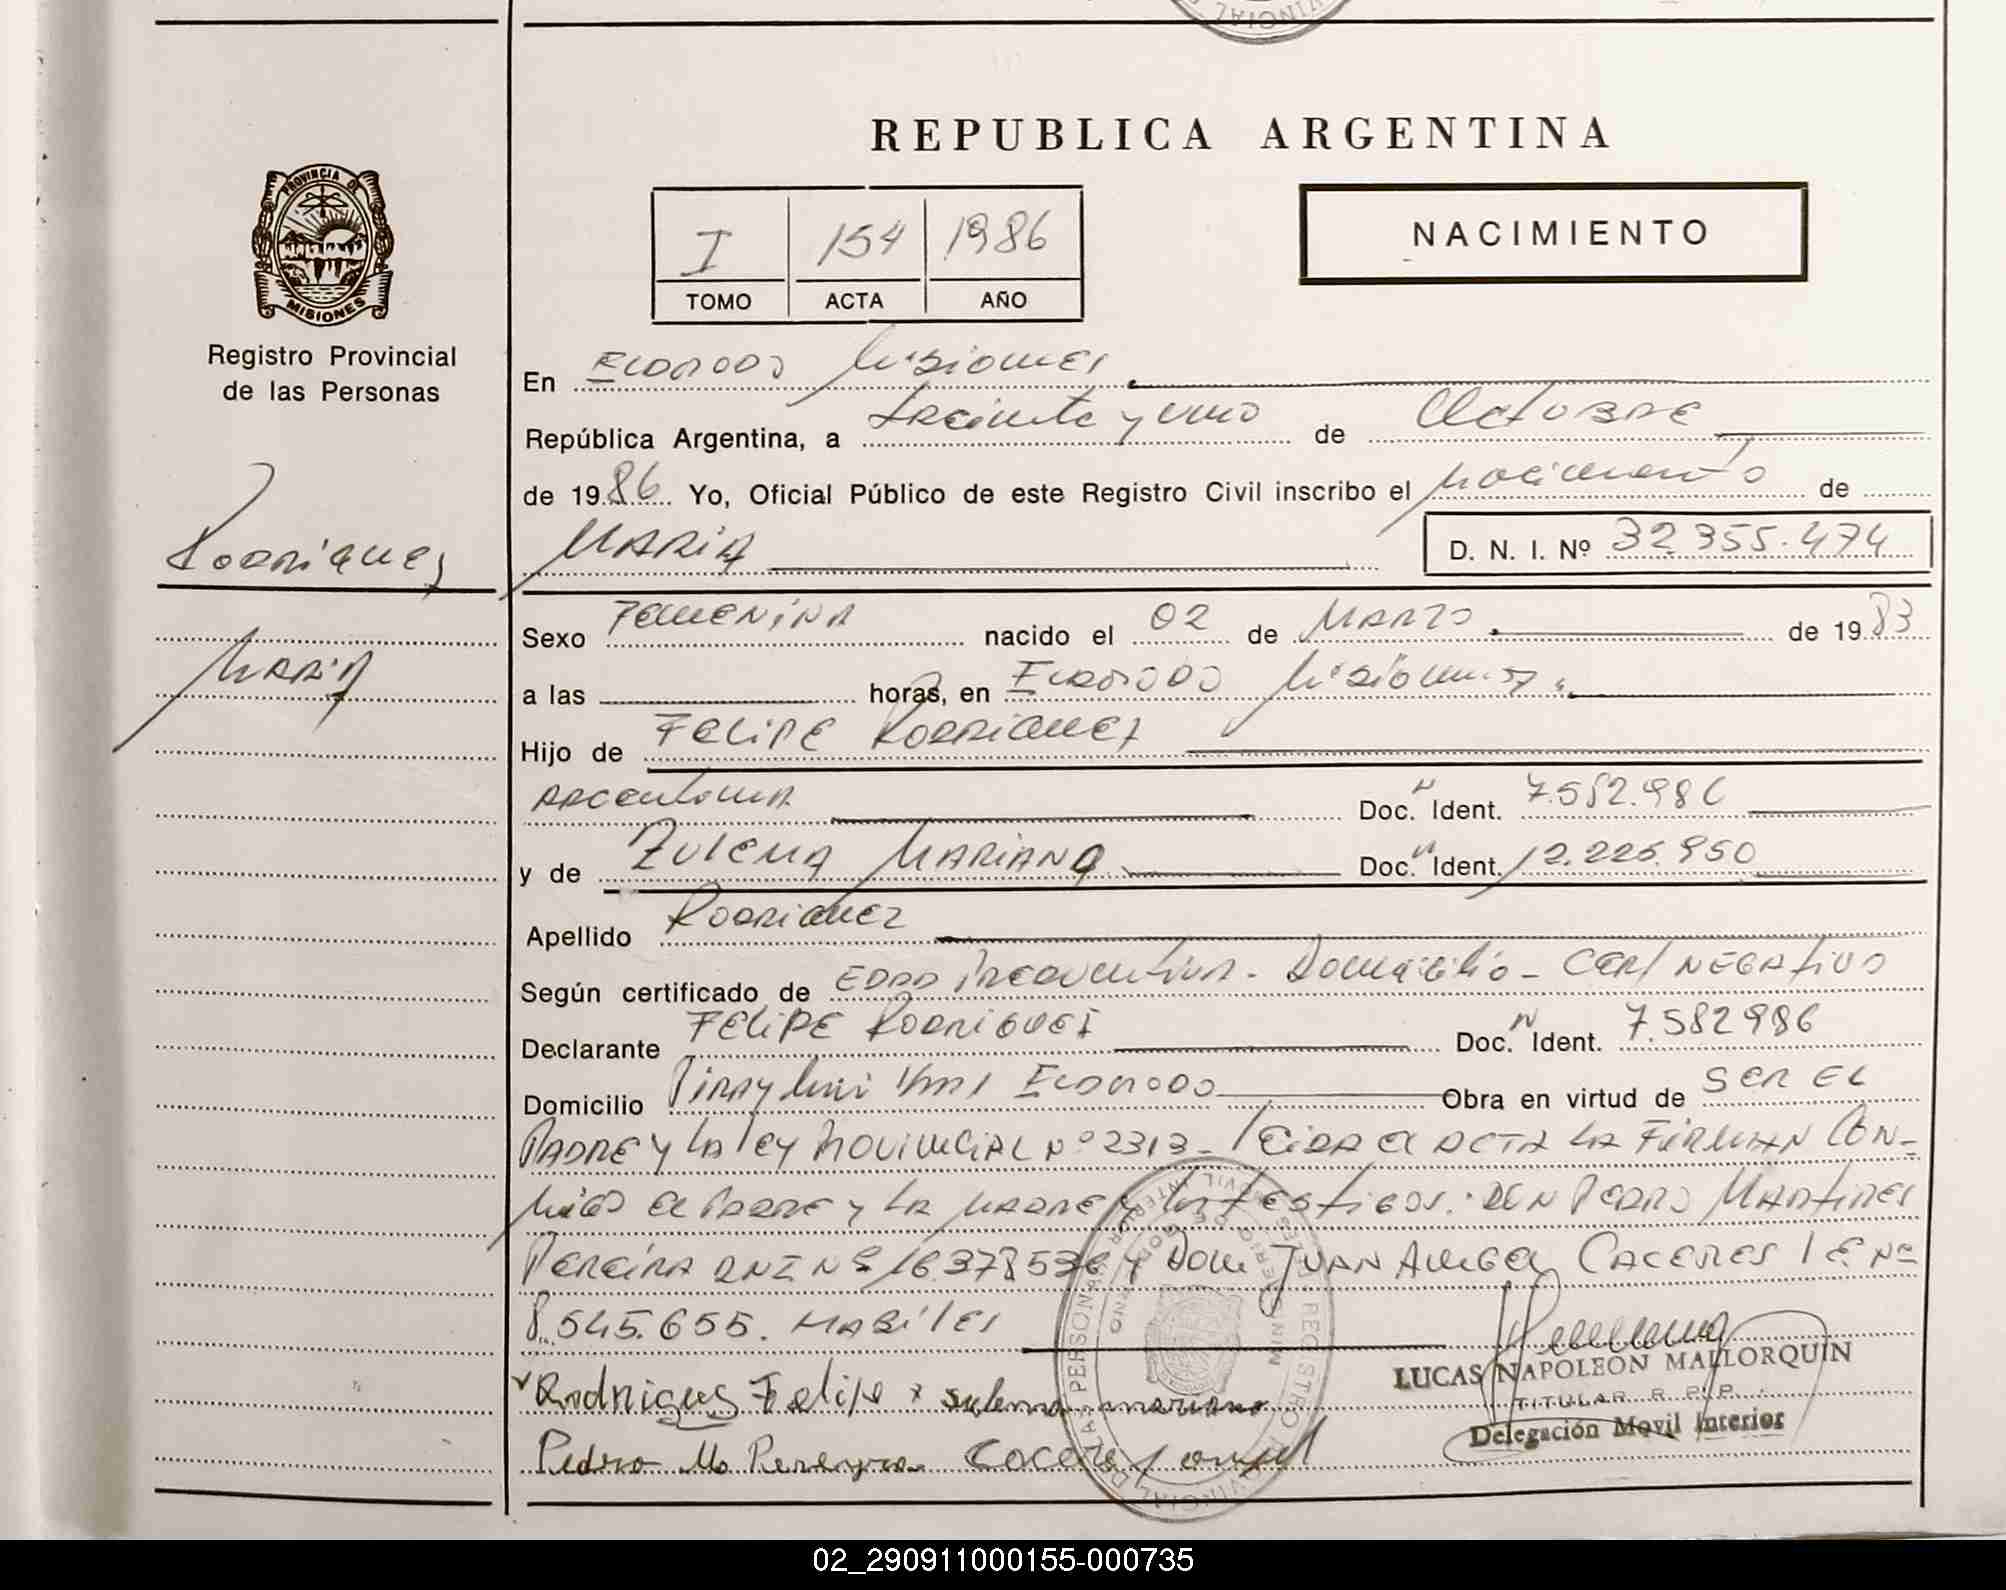 REPUBLICA ARGENTINA
PROVINCIA DE
MISIONES
Registro Provincial
de las Personas
I 154 1986
TOMO ACTA AÑO
NACIMIENTO
En Eldorado Misiones
República Argentina, a treinta y uno de Octubre
de 1986 Yo, Oficial Público de este Registro Civil inscribo el nacimiento de
Rodriguez
MARIA
D. N. I. Nº 32.355.474
MARIA
Sexo FEMENINA nacido el 02 de MARZO de 1983
a las horas, en Eldorado Misiones
Hijo de FELIPE RODRIGUEZ
ARGENTINA Doc. N Ident. 7.582.986
y de ZULEMA MARIANA Doc. N Ident. 12.225.950
Apellido RODRIGUEZ
Según certificado de EDAD PREQUNTIVA - Domicilio - CERT NEGATIVO
Declarante FELIPE RODRIGUEZ Doc. N Ident. 7.582986
Domicilio Piray Mini Km1 Eldorado Obra en virtud de SER EL
PADRE y LA LEY PROVINCIAL Nº 2313 - LEIDA EL ACTA LA FIRMAN CON-
MIGO EL PADRE y LA MADRE y LOS TESTIGOS: DON PEDRO MARTIRES
PEREIRA DNI Nº 16.378536 y DON JUAN ANGEL CACERES L E. Nº
8.545.655. HABILES
Rodrigues Felipe x sulema mariana
LUCAS NAPOLEON MALLORQUIN
TITULAR R. P. P.
Delegación Movil Interior
Pedro M Pereyra Cacere Juan angel
02_290911000155-000735